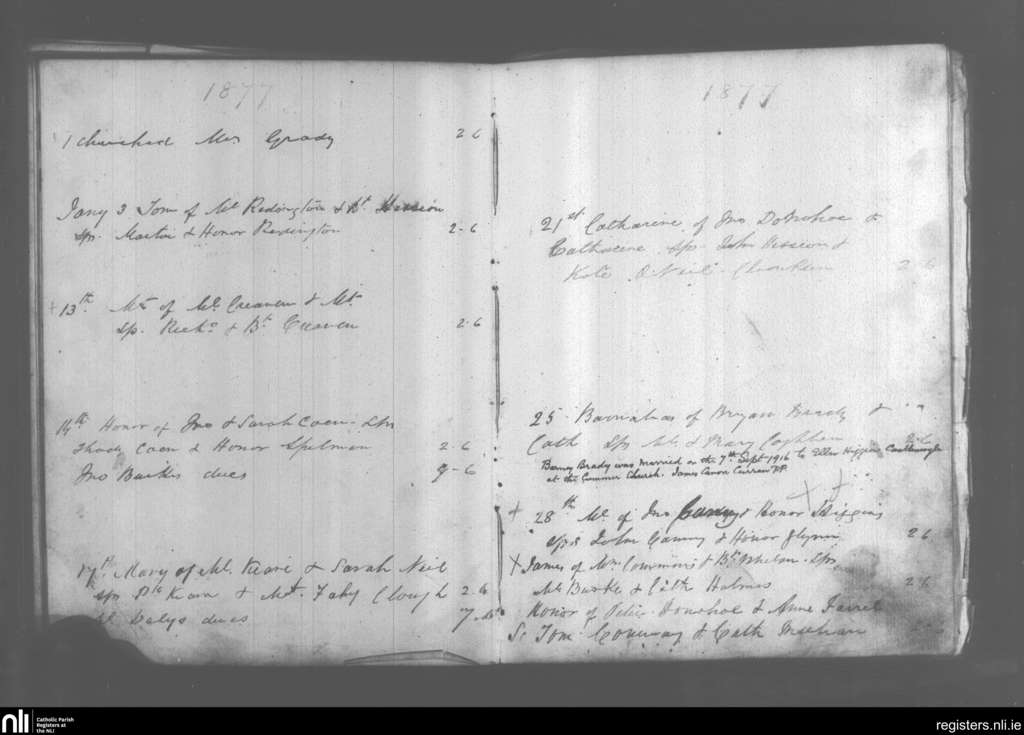 1877
1 churched Mrs Grady 2 6
Jany 3 Tom of Mt Redington & Bt Hession
Sps. Martin & Honor Redington 2-6
+ 13th. Mt of Ml Creaven & Mt
Sp. Richd & Bt Creaven 2.6
14th Honor of Jno & Sarah Coen. Sps
Thady Coen & Honor Spelman 2-6
Jno Burkes dues 9-6
17th. Mary of Ml. Keare & Sarah Neil
Sps Pk Keara & Mt. Fahy Clough 2.6
Dalys dues
1877
21st. Catharine of Jno Donohoe &
Catharine Sps. John Hession &
Kate O'Neil. 2-6
25 Barnabas of Bryan Brady &
Cath Sps Ml & Mary Coghlan
Barney Brady was married on the 7th Sept 1916 to Ellen Higgins
at the Cummer Church. James Canon Curran P.P.
+ 28th Ml. of Jno Canny & Honor Higgins
Sps John Canny & Honor Flynn 2 6
X James of Wm Commons & Bt Whelan. Sps
Ml Burke & Cath Holmes 2 6
Honor of Peter Donohoe & Anne Farrel
Ss Tom Conway & Cath Meehan
nli
Catholic Parish
Registers at
the NLI
registers.nli.ie